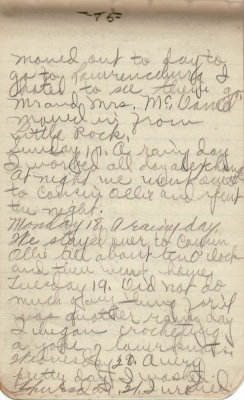 -75-
moved out to day to
go to Lawrenceburg I
hated to see them go
Mr and Mrs. McDaniel
moved in from
Little Rock.
Sunday 17. A rainy day
I worked all day
At night we went over
to Cousin Ollie and spent
the night.
Monday 18, A rainy day.
We stayed over to Cousin
Ollie till about ten O'clock
and then went home,
Tuesday 19. Did not do
much of any thing for it
was another rainy day
I began crocheting
a yoke
Wednesday 20. A very
pretty day I washed
Thursday, 21. I